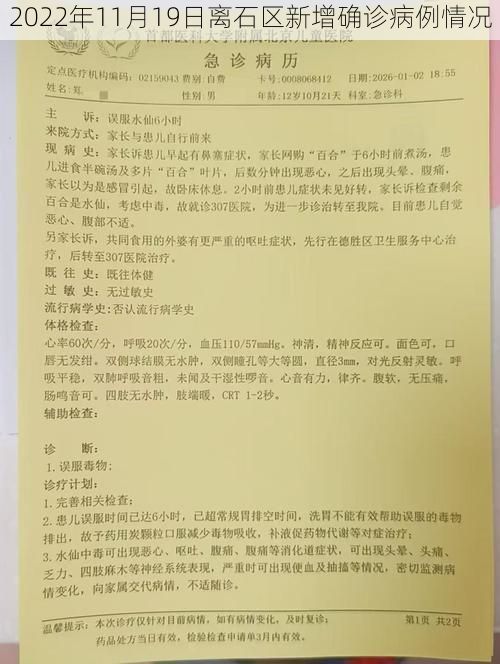 2022年11月19日离石区新增确诊病例情况
首都医科大学附属北京儿童医院
急诊病历
定点医疗机构编码：02159043 费别：自费 卡号：0008068412 日期：2026-01-02 18:55
姓名：郑 性别：男 年龄：12岁10月21天 科室：急诊科
主 诉：误服水仙6小时
来院方式：家长与患儿自行前来
现 病 史：家长诉患儿早起有鼻塞症状，家长网购“百合”于6小时前煮汤，患
儿进食半碗汤及多片“百合”叶片，后数分钟出现恶心，之后出现头晕、腹痛，
家长以为是感冒引起，故卧床休息。2小时前患儿症状未见好转，家长诉检查剩余
百合是水仙，考虑中毒，故就诊307医院，为进一步诊治转至我院。目前患儿自觉
恶心、腹部不适。
另家长诉，共同食用的外婆有更严重的呕吐症状，先行在德胜区卫生服务中心治
疗，后转至307医院治疗。
既 往 史：既往体健
过 敏 史：无过敏史
流行病学史：否认流行病学史
体格检查：
心率60次/分，呼吸20次/分，血压110/57mmHg。神清，精神反应可。面色可。口
唇无发绀。双侧球结膜无水肿，双侧瞳孔等大等圆，直径3mm，对光反射灵敏。呼
吸平稳，双肺呼吸音粗，未闻及干湿性啰音。心音有力，律齐。腹软，无压痛，
肠鸣音可。四肢无水肿，肢端暖，CRT 1-2秒。
辅助检查：
诊 断：
1.误服毒物；
诊疗计划：
1.完善相关检查；
2.患儿误服时间已达6小时，已超常规胃排空时间，洗胃不能有效帮助误服的毒物
排出，故予药用炭颗粒口服减少毒物吸收，补液促药物代谢等对症治疗；
3.水仙中毒可出现恶心、呕吐、腹痛、腹痛等消化道症状，可出现头晕、头痛、
乏力、四肢麻木等神经系统表现，严重时可出现便血及抽搐等情况，密切监测病
情变化，向家属交代病情，不适随诊。
温馨提示：本次诊疗仅针对目前病情，如有病情变化，及时复诊；
药品处方当日有效，检验检查申请单3月内有效。
第1页 共2页